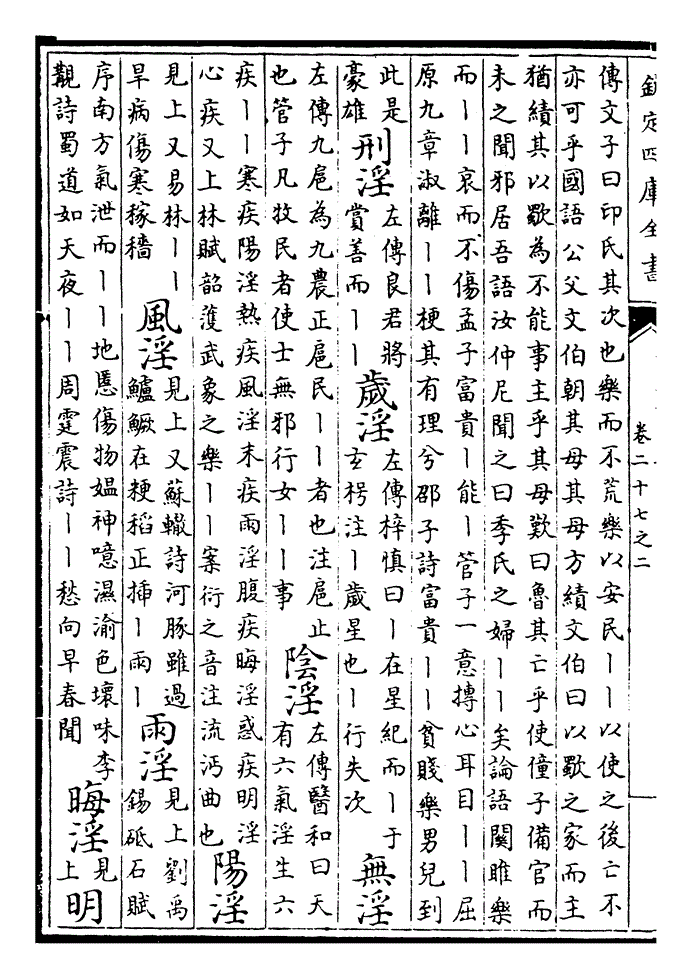 欽定四庫全書
卷二十七之二
傳文子曰印氏其次也樂而不荒樂以安民丨丨以使之後亡不
亦可乎國語公父文伯朝其母其母方績文伯曰以歜之家而主
猶績其以歜為不能事主乎其母歎曰魯其亡乎使僮子備官而
未之聞邪居吾語汝仲尼聞之曰季氏之婦丨丨矣論語關雎樂
而丨丨哀而不傷孟子富貴丨能丨管子一意摶心耳目丨丨屈
原九章淑離丨丨梗其有理兮邵子詩富貴丨丨貧賤樂男兒到
此是
豪雄
刑淫
左傳良君將
賞善而丨丨
歲淫
左傳梓慎曰丨在星紀而丨于
玄枵注丨歲星也丨行失次
無淫
左傳九扈為九農正扈民丨丨者也注扈止
也管子凡牧民者使士無邪行女丨丨事
陰淫
左傳醫和曰天
有六氣淫生六
疾丨丨寒疾陽淫熱疾風淫末疾雨淫腹疾晦淫惑疾明淫
心疾又上林賦韶濩武象之樂丨丨案衍之音注流沔曲也
陽淫
見上又易林丨丨
旱病傷寒稼穡
風淫
見上又蘇轍詩河豚雖過
鱸鱖在粳稻正揷丨雨丨
雨淫
見上劉禹
錫砥石賦
序南方氣泄而丨丨地慝傷物媪神噫濕渝色壞味李
覯詩蜀道如天夜丨丨周霆震詩丨丨愁向早春聞
晦淫
見
上
明